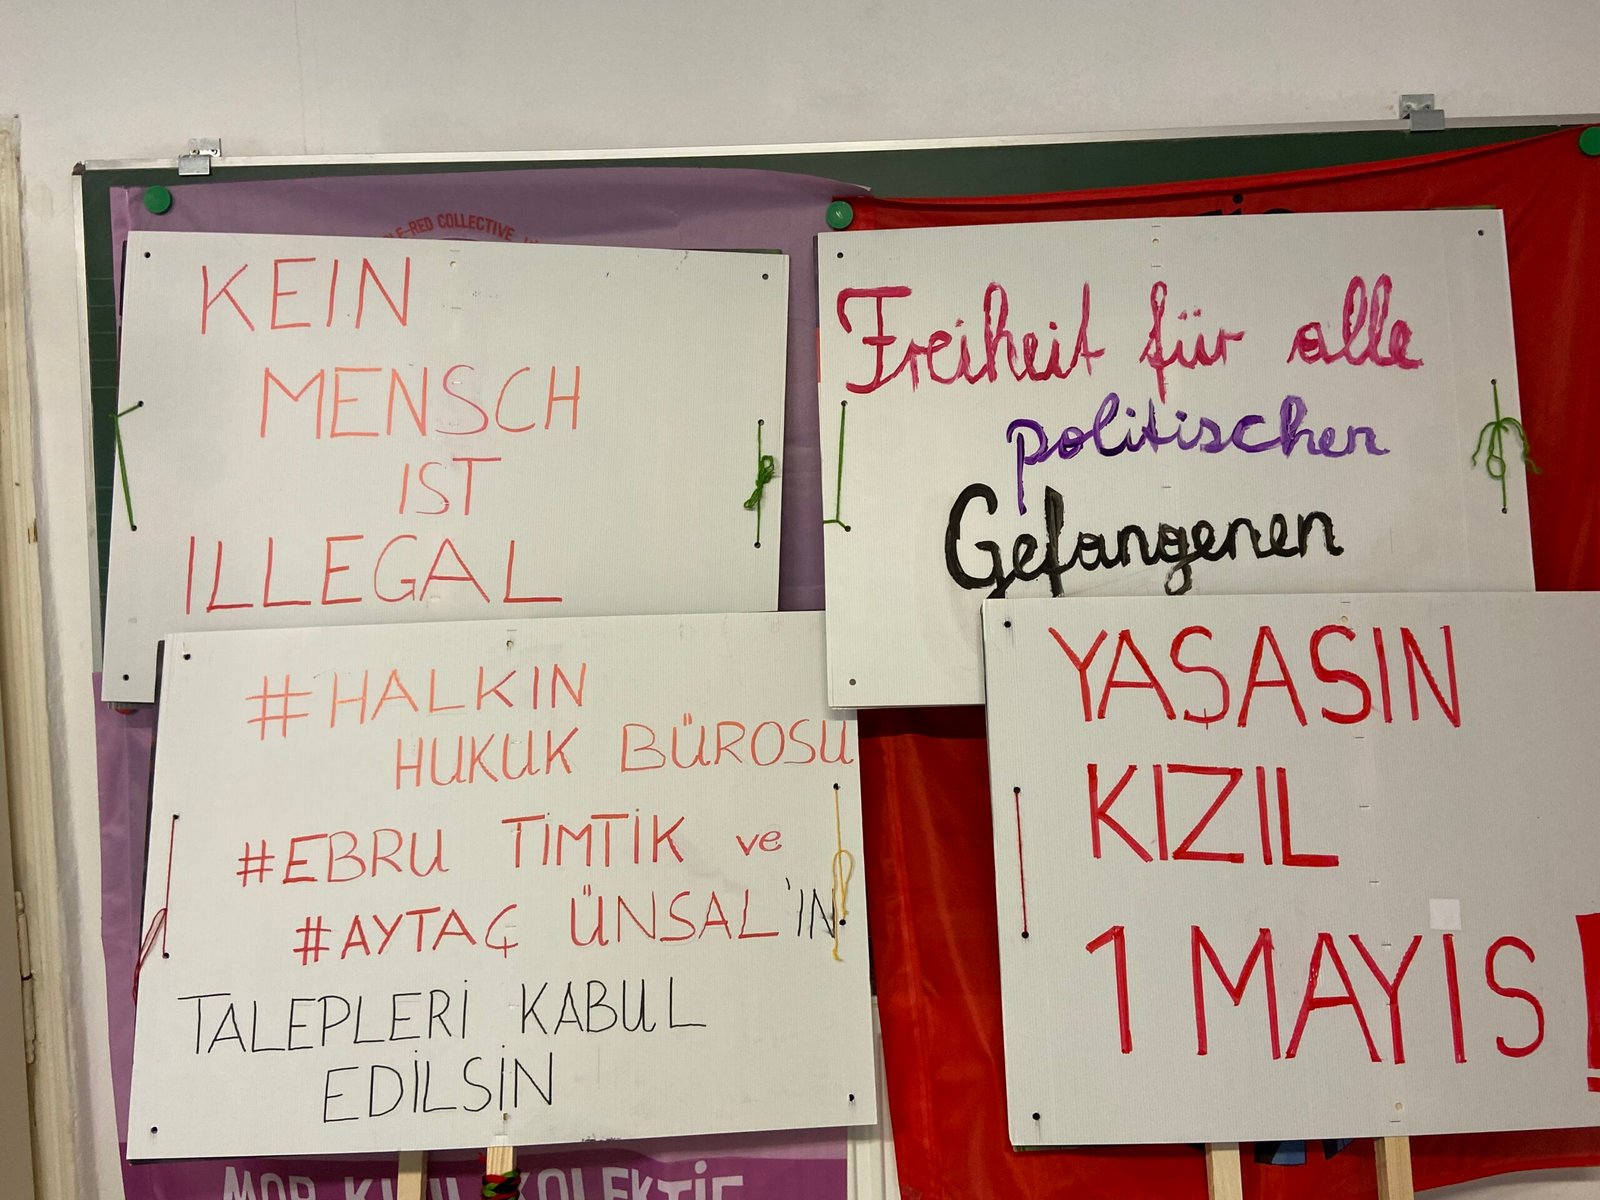 RED COLLECTIVE
KEIN
MENSCH
IST
ILLEGAL
Freiheit für alle
politischen
Gefangenen
#HALKIN
HUKUK BÜROSU
#EBRU TİMTİK ve
#AYTAÇ ÜNSAL'IN
TALEPLERİ KABUL
EDİLSİN
YAŞASIN
KIZIL
1 MAYIS!
MOR KIZIL KOLEKTİF